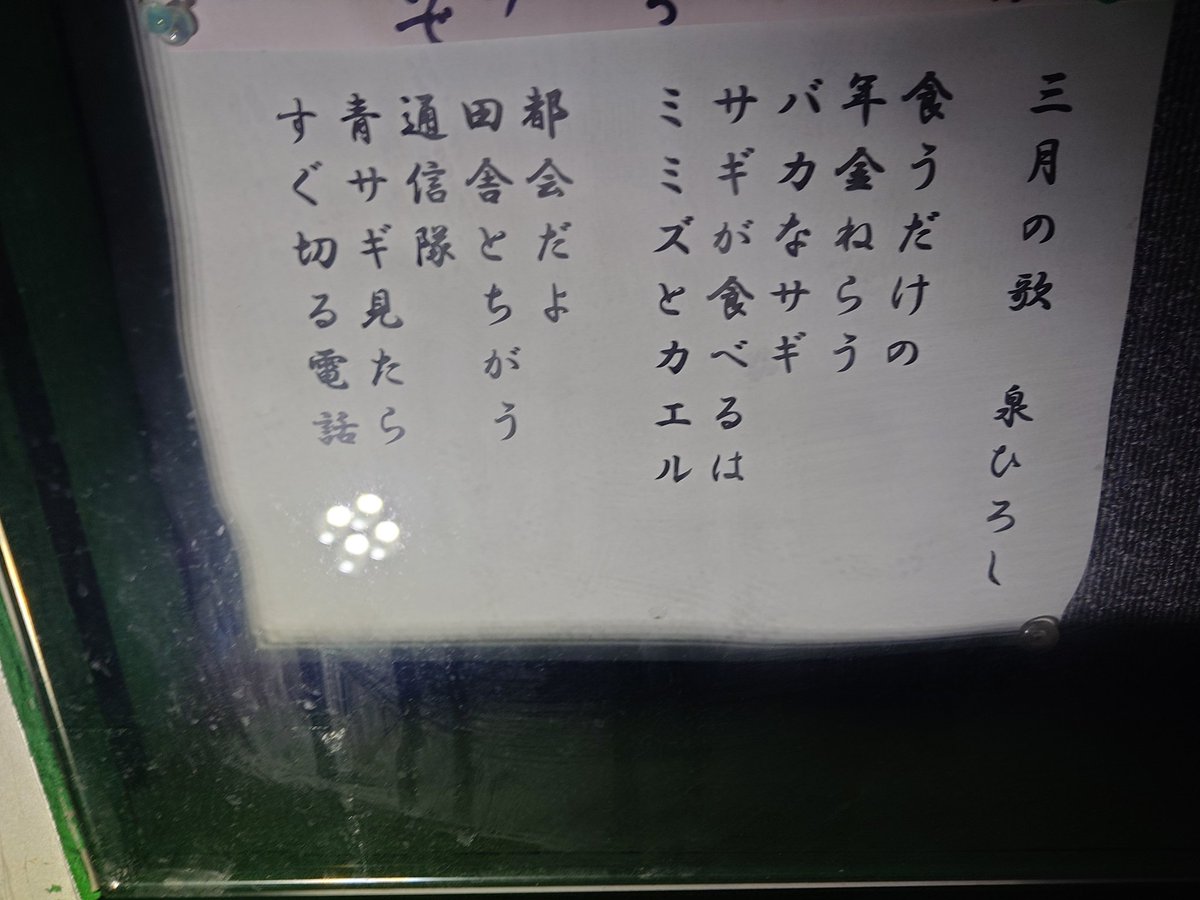 三月の歌 泉ひろし
食うだけの
年金ねらう
バカなサギ
サギが食べるは
ミミズとカエル
都会だよ
田舎とちがう
通信隊
青サギ見たら
すぐ切る電話